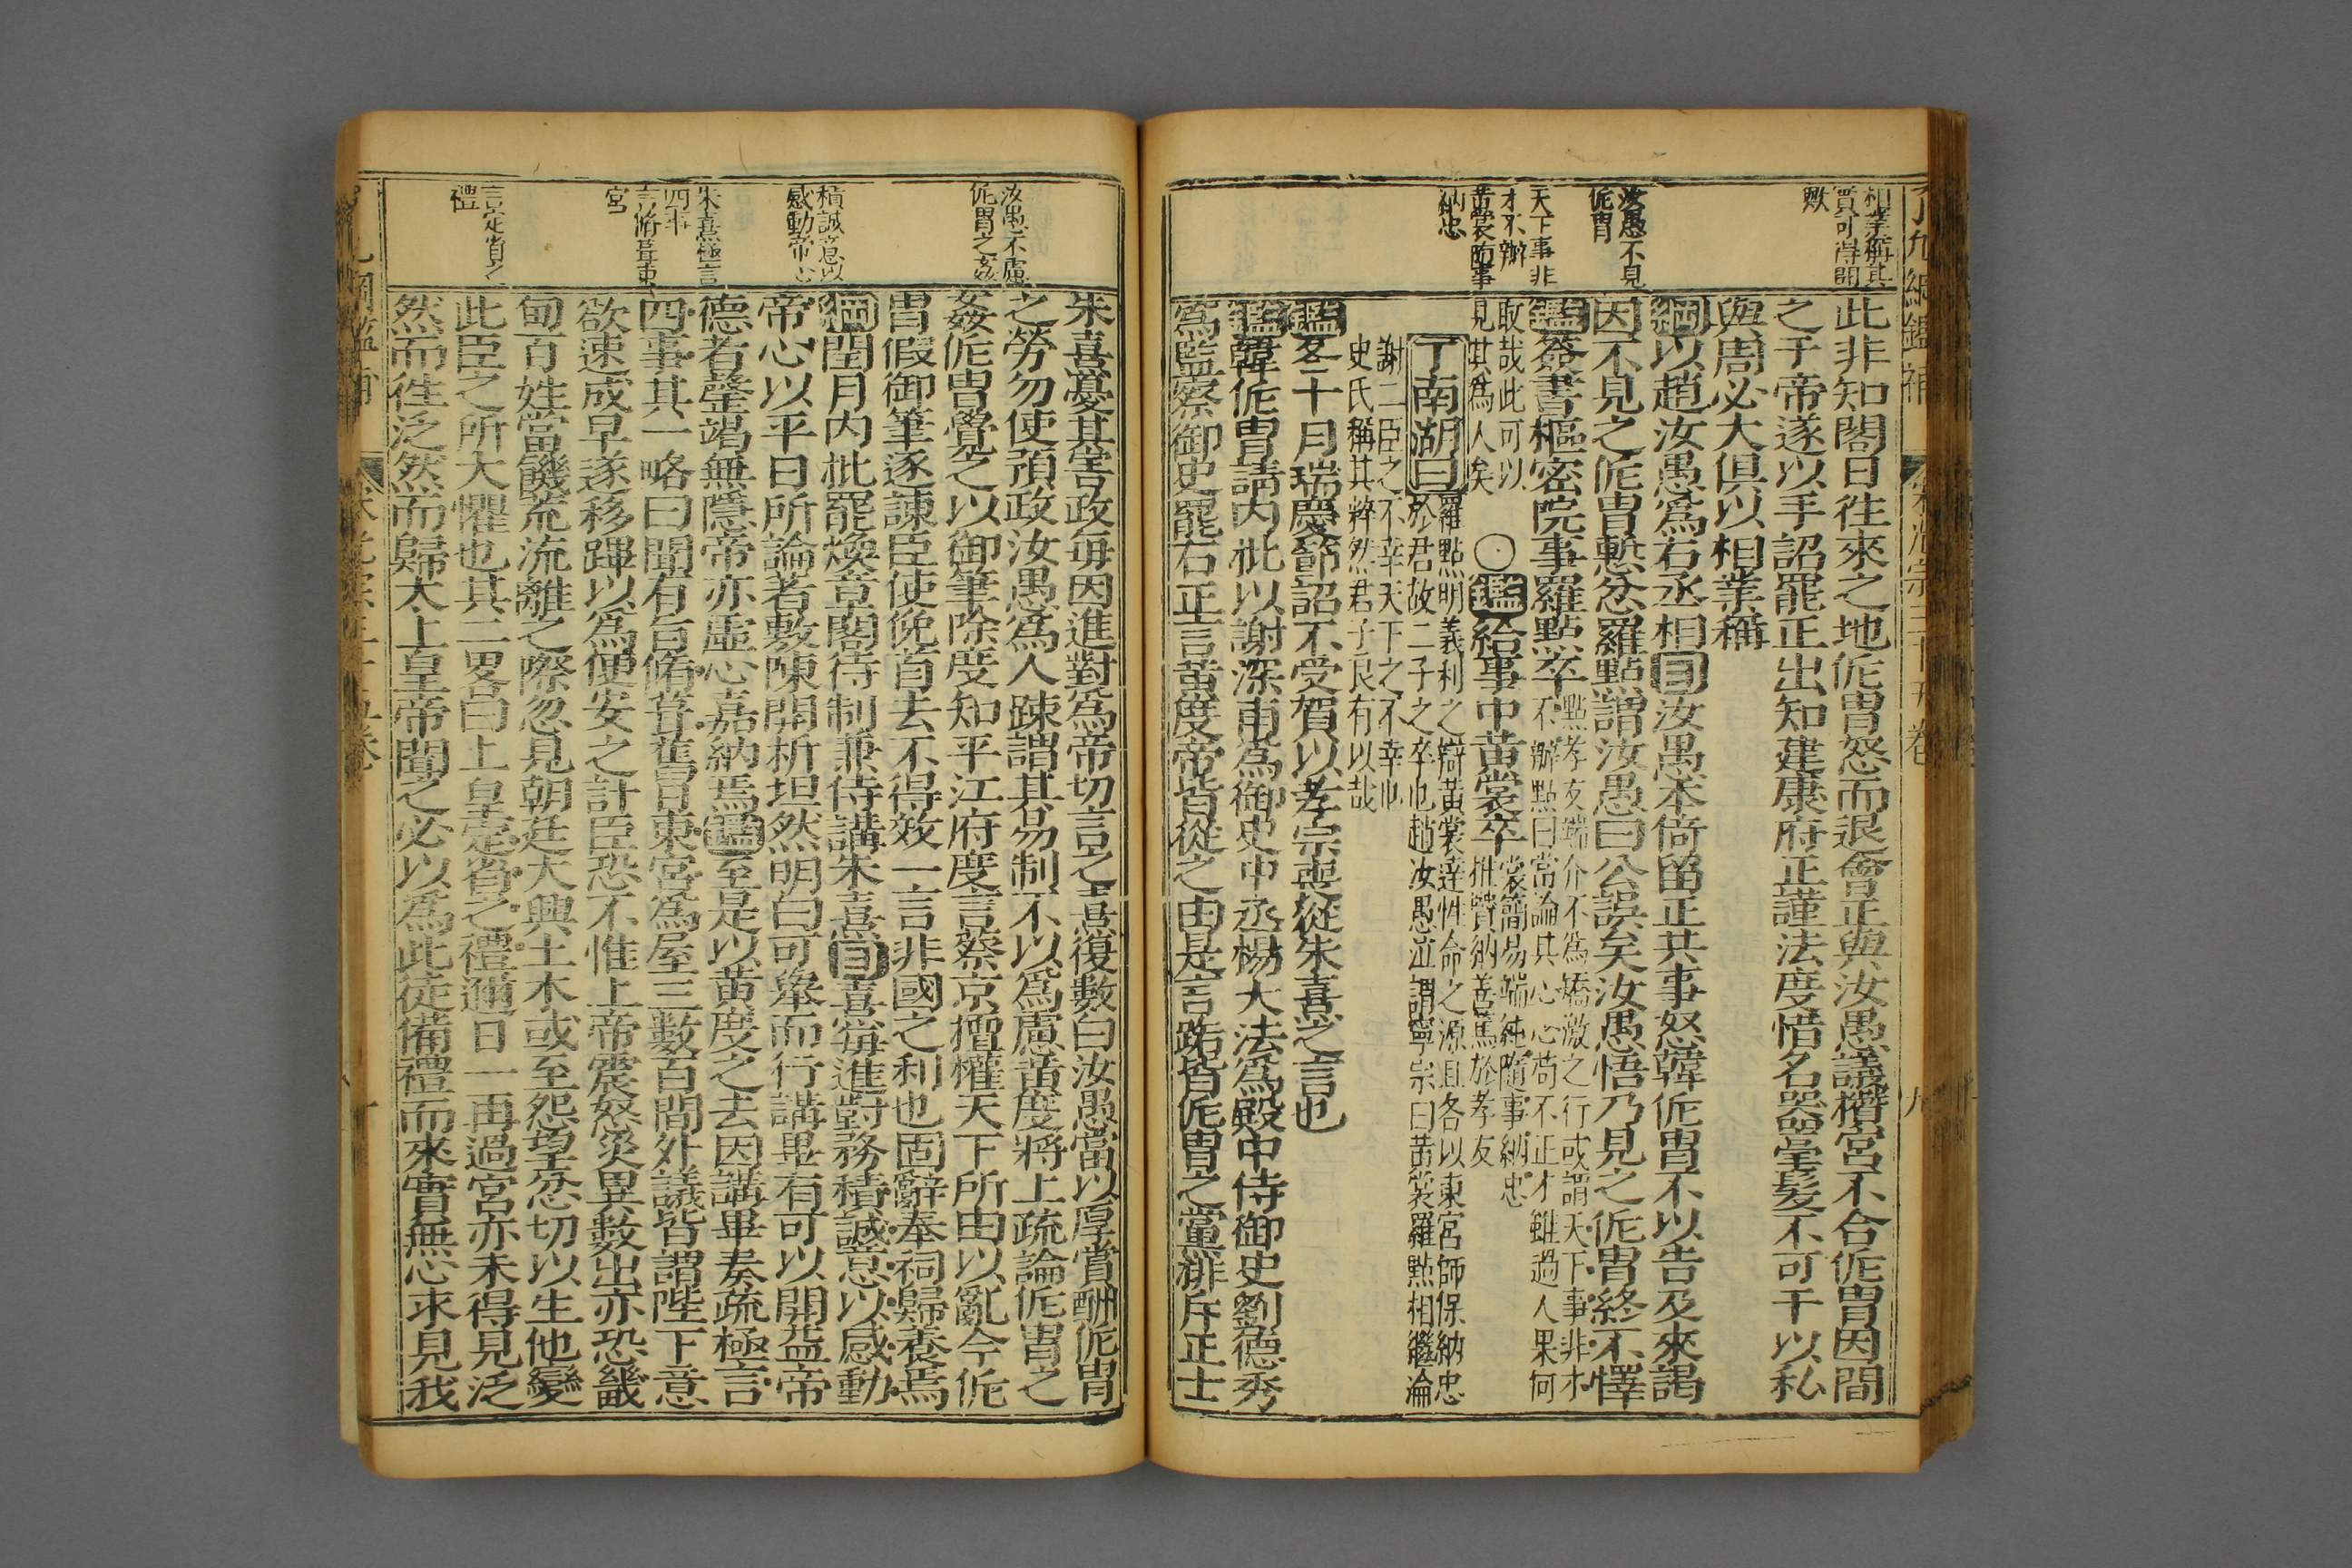 相業稱其
賈可得聞
歟
汝愚不見
侂胄
天下事非
才不辦
黃裳隨事
納忠
此非知閣日往來之地侂胄怒而退會正與汝愚議欑宮不合侂胄因間
之于帝遂以手詔罷正出知建康府正謹法度惜名器毫髮不可干以私
與周必大俱以相業稱
綱以趙汝愚爲右丞相目汝愚本倚留正共事怒韓侂胄不以告及來謁
因不見之侂胄慙忿羅點謂汝愚曰公誤矣汝愚悟乃見之侂胄終不懌
鑑簽書樞密院事羅點卒
點孝友端介不爲矯激之行或謂天下事非才
不辦點曰當論其心心苟不正才雖過人果何
取哉此可以
見其爲人矣
○鑑給事中黃裳卒
裳簡易端純隨事納忠
推賢納善篤於孝友
丁南湖曰
羅點明義利之辯黃裳達性命之源且各以東宮師保納忠
於君故二子之卒也趙汝愚泣謂寧宗曰黃裳羅點相繼淪
謝二臣之不幸天下之不幸也
史氏稱其粹然君子良有以哉
鑑冬十月瑞慶節詔不受賀以孝宗喪從朱熹之言也
鑑韓侂胄請內批以謝深甫爲御史中丞楊大法爲殿中侍御史劉德秀
爲監察御史罷右正言黃度帝皆從之由是言路皆侂胄之黨排斥正士
汝愚不慮
侂胄之姦
積誠意以
感動帝心
朱熹極言
四事
言脩葺東
宮
言定省之
禮
朱熹憂其害政每因進對爲帝切言之熹復數白汝愚當以厚賞酬侂胄
之勞勿使預政汝愚爲人疎謂其易制不以爲慮黃度將上疏論侂胄之
姦侂胄覺之以御筆除度知平江府度言蔡京擅權天下所由以亂今侂
胄假御筆逐諫臣使俛首去不得效一言非國之利也固辭奉祠歸養焉
綱閏月內批罷煥章閣待制兼侍講朱熹目熹每進對務積誠意以感動
帝心以平日所論著敷陳開析坦然明白可舉而行講畢有可以開益帝
德者罄竭無隱帝亦虛心嘉納焉鑑至是以黃度之去因講畢奏疏極言
四事其一略曰聞有旨脩葺舊日東宮爲屋三數百間外議皆謂陛下意
欲速成早遂移蹕以爲便安之計臣恐不惟上帝震怒災異數出亦恐畿
甸百姓當饑荒流離之際忽見朝廷大興土木或至怨望忿切以生他變
此臣之所大懼也其二畧曰上皇定省之禮邇日一再過宮亦未得見泛
然而往泛然而歸太上皇帝聞之必以爲此徒備禮而來實無心求見我